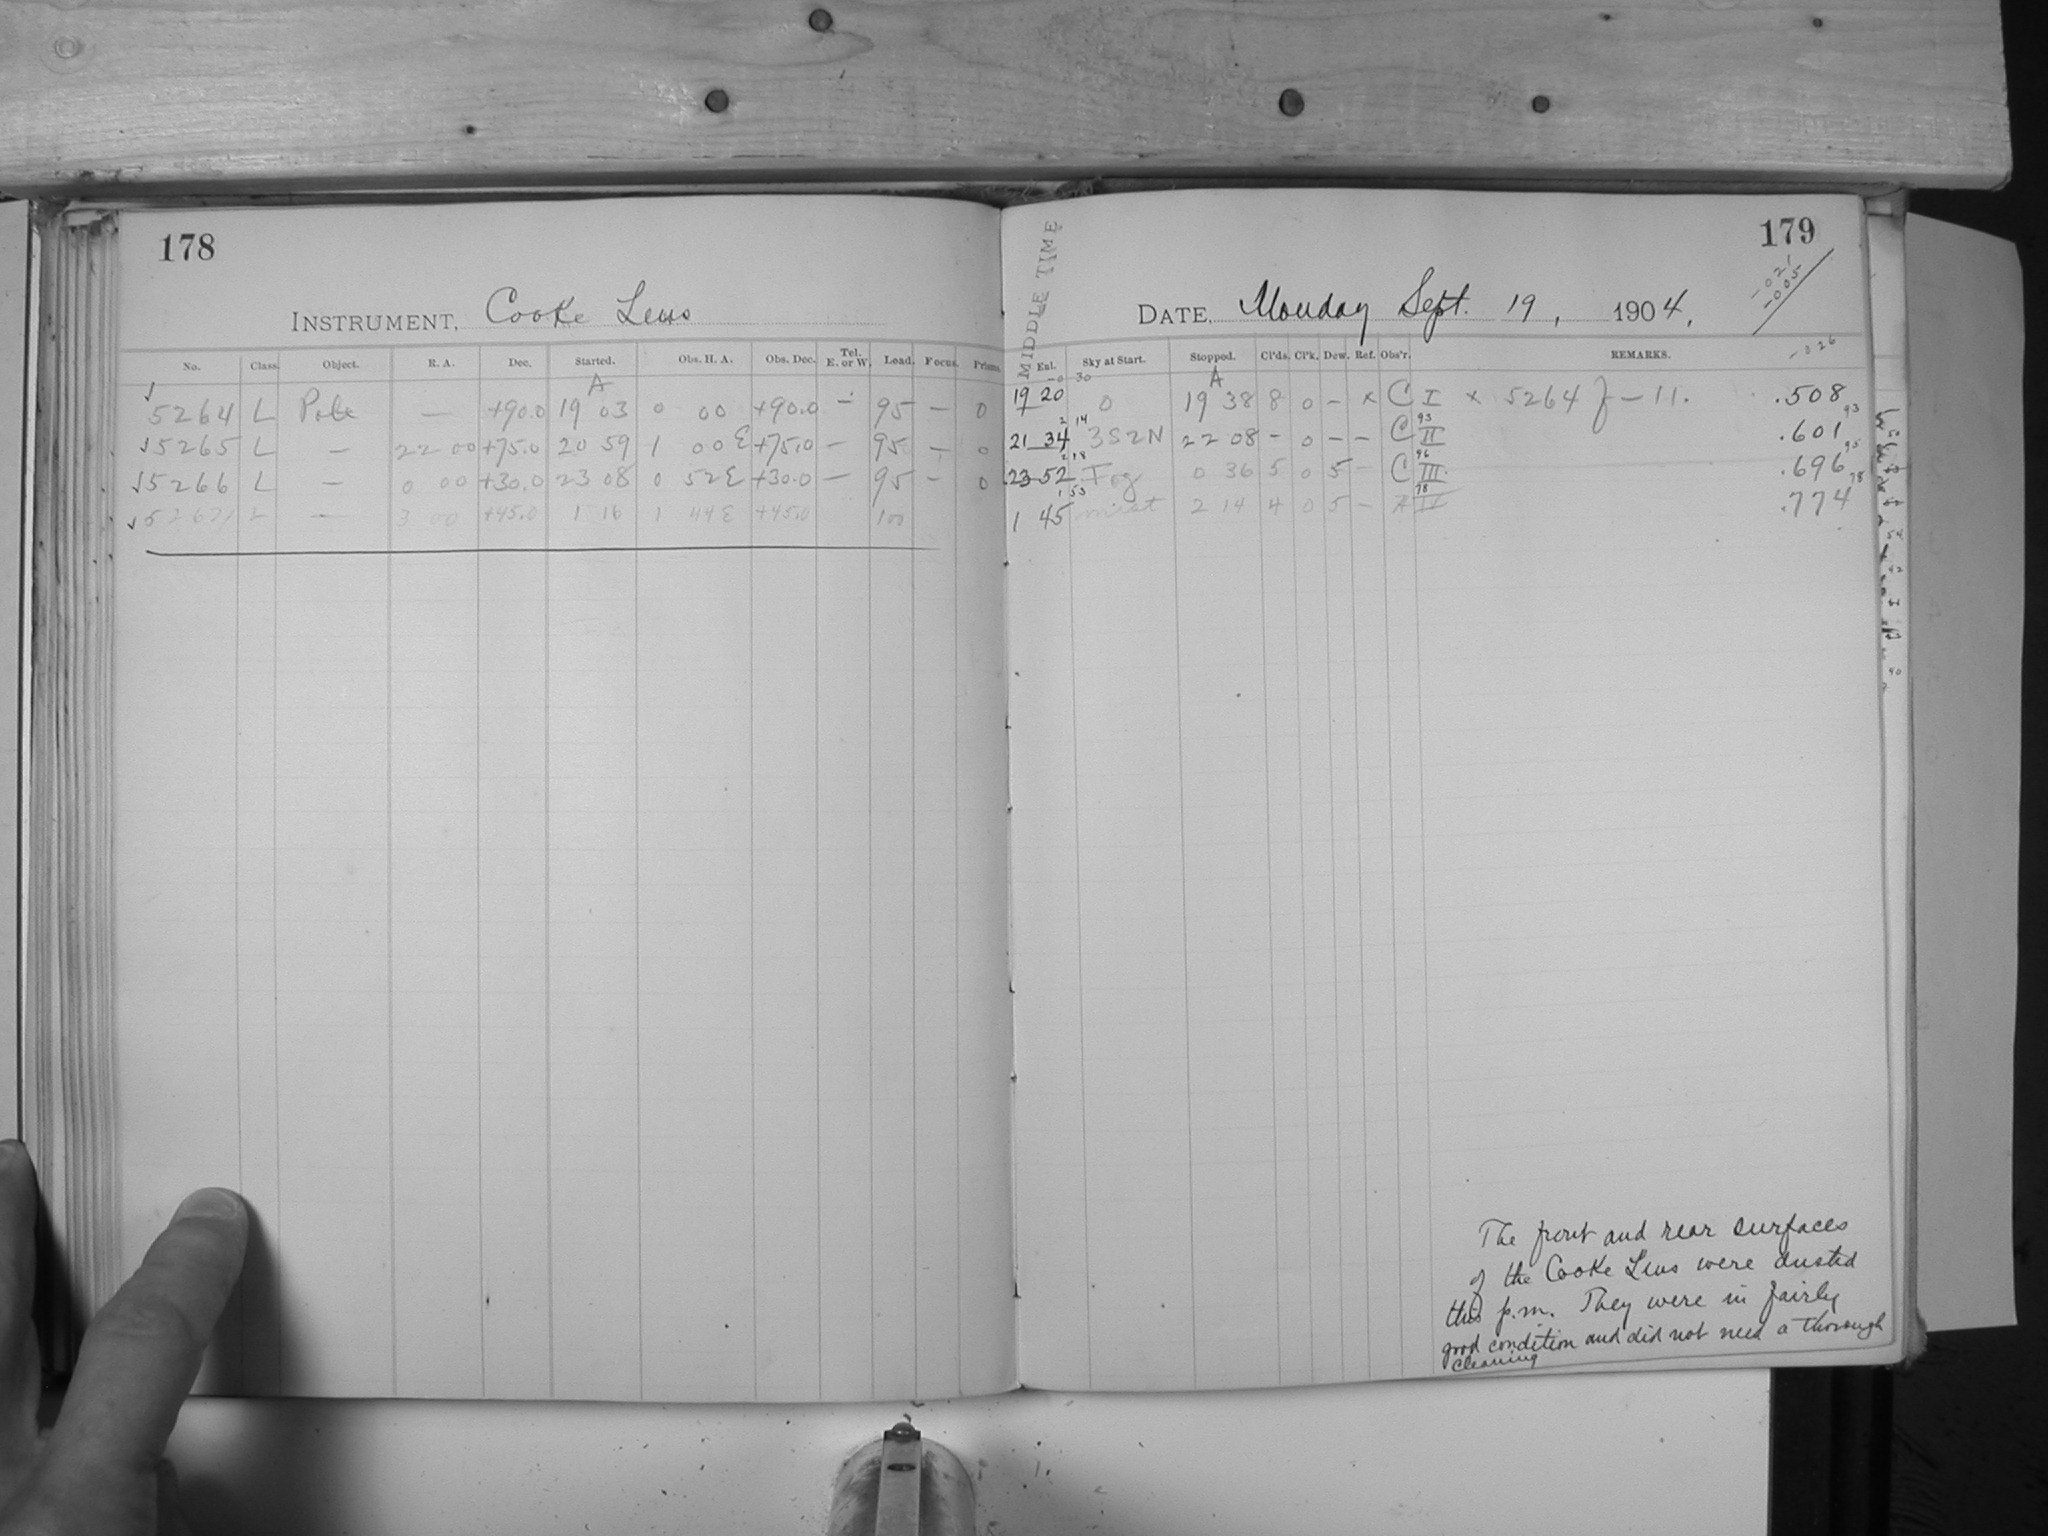 178
INSTRUMENT, Cooke Lens
No. Class Object. R. A. Dec. Started. Obs. H. A. Obs. Dec. Tel. E. or W. Load. Focus. Prisms.
A
5264 L Pole — +90.0 19 03 0 00 +90.0 — 95 — 0
√5265 L — 22 00 +75.0 20 59 1 00 E +75.0 — 95 — 0
√5266 L — 0 00 +30.0 23 08 0 52 E +30.0 — 95 — 0
√5267 L — 3 00 +45.0 1 16 1 44 E +45.0 100
MIDDLE TIME
179
DATE, Monday Sept. 19, 1904,
-021
-005
-026
Enl. Sky at Start. Stopped. Cl'ds. Cl'k. Dew. Ref. Obs'r. REMARKS.
-0 30 A
19 20 0 19 38 8 0 — x C I x 5264 J — 11. .508
2 14 93 93
21 34 3S2N 22 08 - 0 — — C II .601
2 18 96 95
23 52 Fog 0 36 5 0 5 — C III. .696
1 53 78 78
1 45 mist 2 14 4 0 5 — A IV .774
The front and rear surfaces
of the Cooke Lens were dusted
this p.m. They were in fairly
good condition and did not need a thorough
cleaning